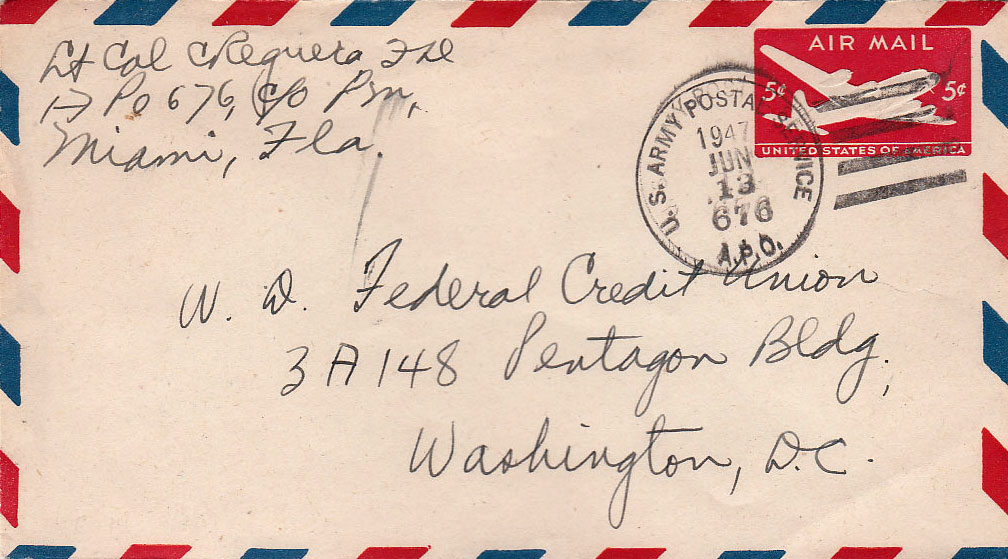 Lt Col C Reguera FD
APO 676, c/o Pm,
Miami, Fla.
AIR MAIL
5¢ 5¢
UNITED STATES OF AMERICA
U.S. ARMY POSTAL SERVICE
1947
JUN
13
676
A.P.O.
W. D. Federal Credit Union
3A148 Pentagon Bldg.,
Washington, D.C.